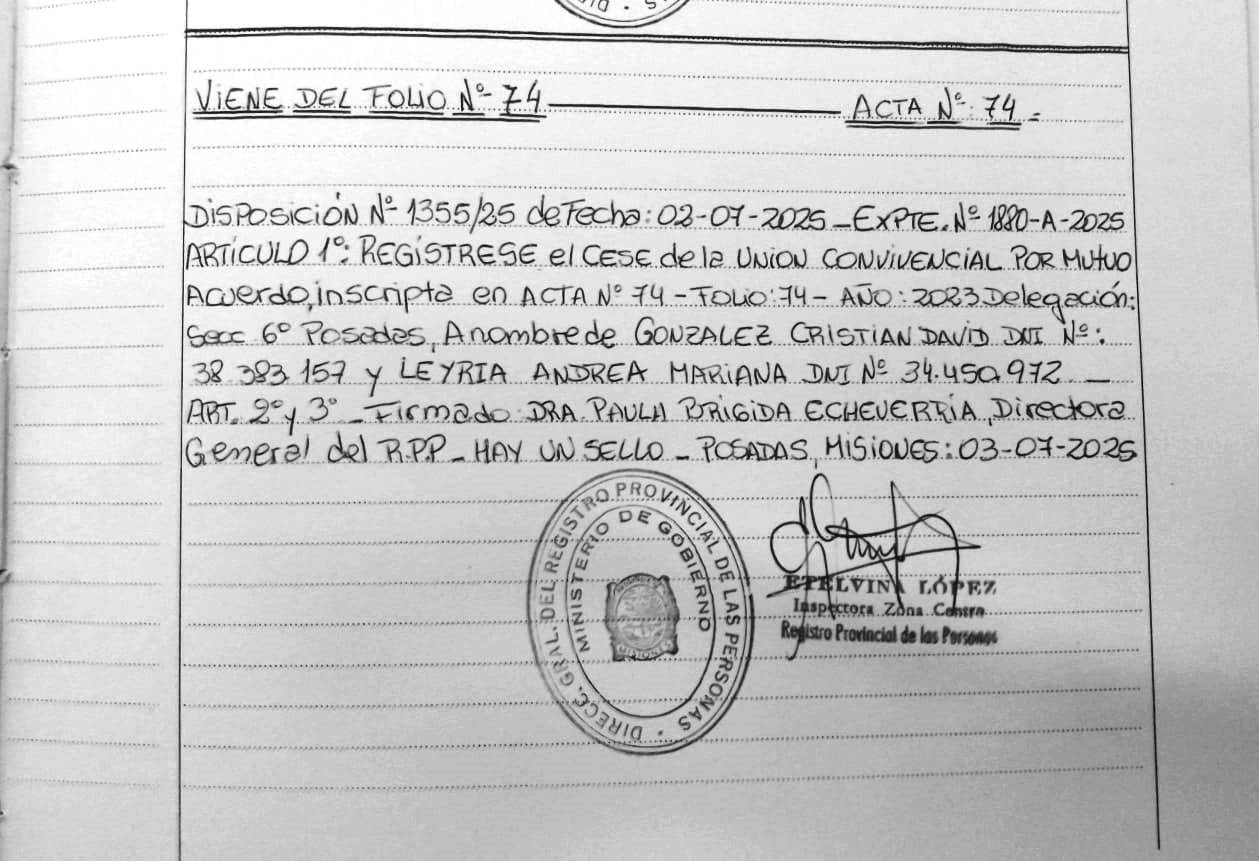 VIENE DEL FOLIO Nº 74 ACTA Nº: 74.-
DISPOSICIÓN Nº 1355/25 de Fecha: 03-07-2025 _ EXPTE. Nº 1880-A-2025
ARTÍCULO 1º: REGÍSTRESE el CESE de la UNION CONVIVENCIAL POR MUTUO
Acuerdo, inscripta en ACTA Nº 74 - FOLIO: 74 - AÑO: 2023 Delegación:
Secc 6º Posadas, A nombre de GONZALEZ CRISTIAN DAVID DNI Nº:
38.383.157 y LEYRIA ANDREA MARIANA DNI Nº 34.450.972 _
ART. 2º y 3º _ Firmado: DRA. PAULA BRIGIDA ECHEVERRÍA, Directora
General del R.P.P _ HAY UN SELLO _ POSADAS, MISIONES: 03-07-2025
DIRECC. GRAL. DEL REGISTRO PROVINCIAL DE LAS PERSONAS
MINISTERIO DE GOBIERNO
MISIONES
ETELVINA LÓPEZ
Inspectora Zona Centro
Registro Provincial de las Personas